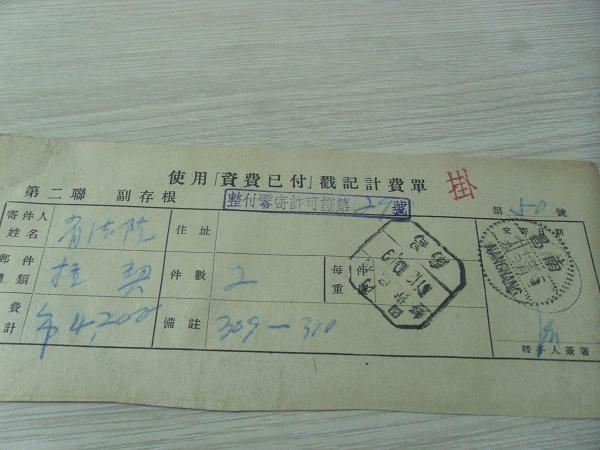 使用「資費已付」戳記計費單
掛
第二聯 副存根
整付零寄許可證第29號
第 50 號
寄件人姓名 省法院 住址
交寄日期
郵件種類 挂 件數 2 每件重
費計 4,200 備註 309—310
南昌
NANCHANG
經手人簽署